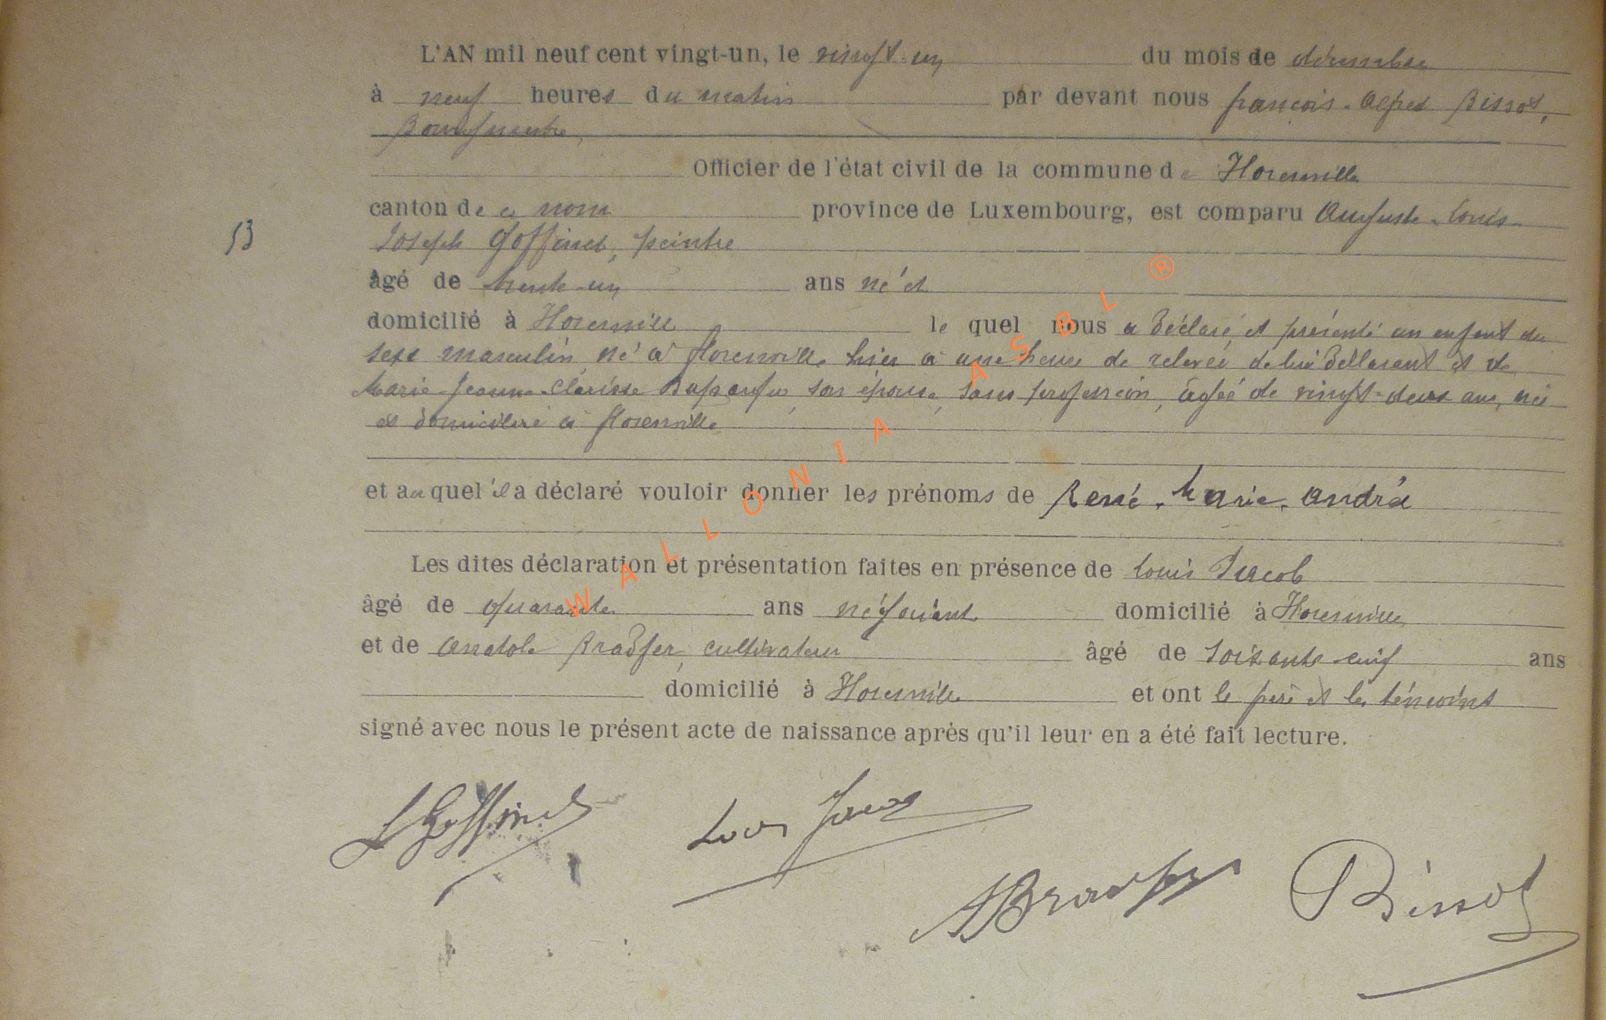 L'AN mil neuf cent vingt-un, le vingt-un du mois de décembre
à neuf heures du matin par devant nous françois-Alfred Bissot,
Bourgmestre,
Officier de l'état civil de la commune de Florenville
canton de ce nom province de Luxembourg, est comparu Auguste-Louis-
53
Joseph Goffinet, peintre
âgé de trente-un ans né et
domicilié à Florenville lequel nous a déclaré et présenté un enfant du
sexe masculin né à florenville hier à une heure de relevée de lui déclarant et de
Marie-Jeanne-Clarisse son épouse, sans profession, âgée de vingt-deux ans, née
et domiciliée à florenville
et auquel il a déclaré vouloir donner les prénoms de René-Marie-André
Les dites déclaration et présentation faites en présence de Louis Jacob
âgé de quarante ans négociant domicilié à Florenville
et de Anatole Bradfer, cultivateur âgé de soixante-neuf ans
domicilié à Florenville et ont le père et les témoins
signé avec nous le présent acte de naissance après qu'il leur en a été fait lecture.
L Goffinet Louis Jacob
ABradfer Bissot
WALLONIA ASBL ®